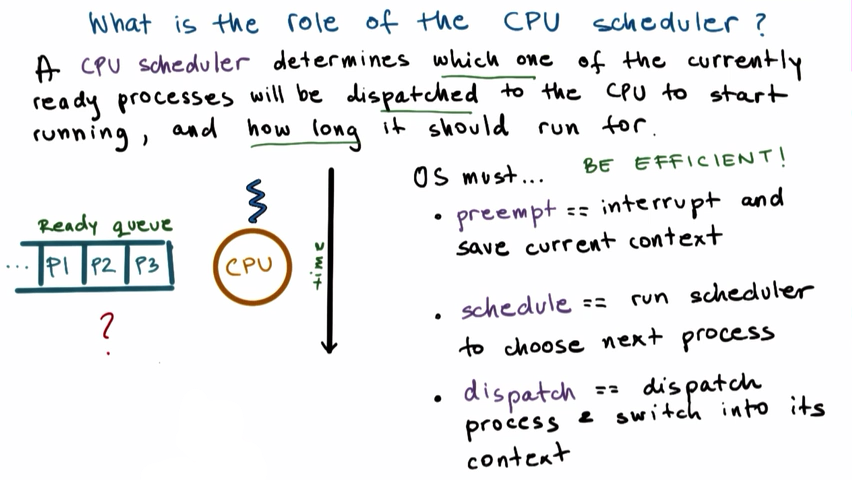 What is the role of the CPU scheduler?
A CPU scheduler determines which one of the currently
ready processes will be dispatched to the CPU to start
running, and how long it should run for.
Ready queue
... P1 P2 P3
?
CPU
time
OS must... BE EFFICIENT!
• preempt == interrupt and
save current context
• schedule == run scheduler
to choose next process
• dispatch == dispatch
process & switch into its
context